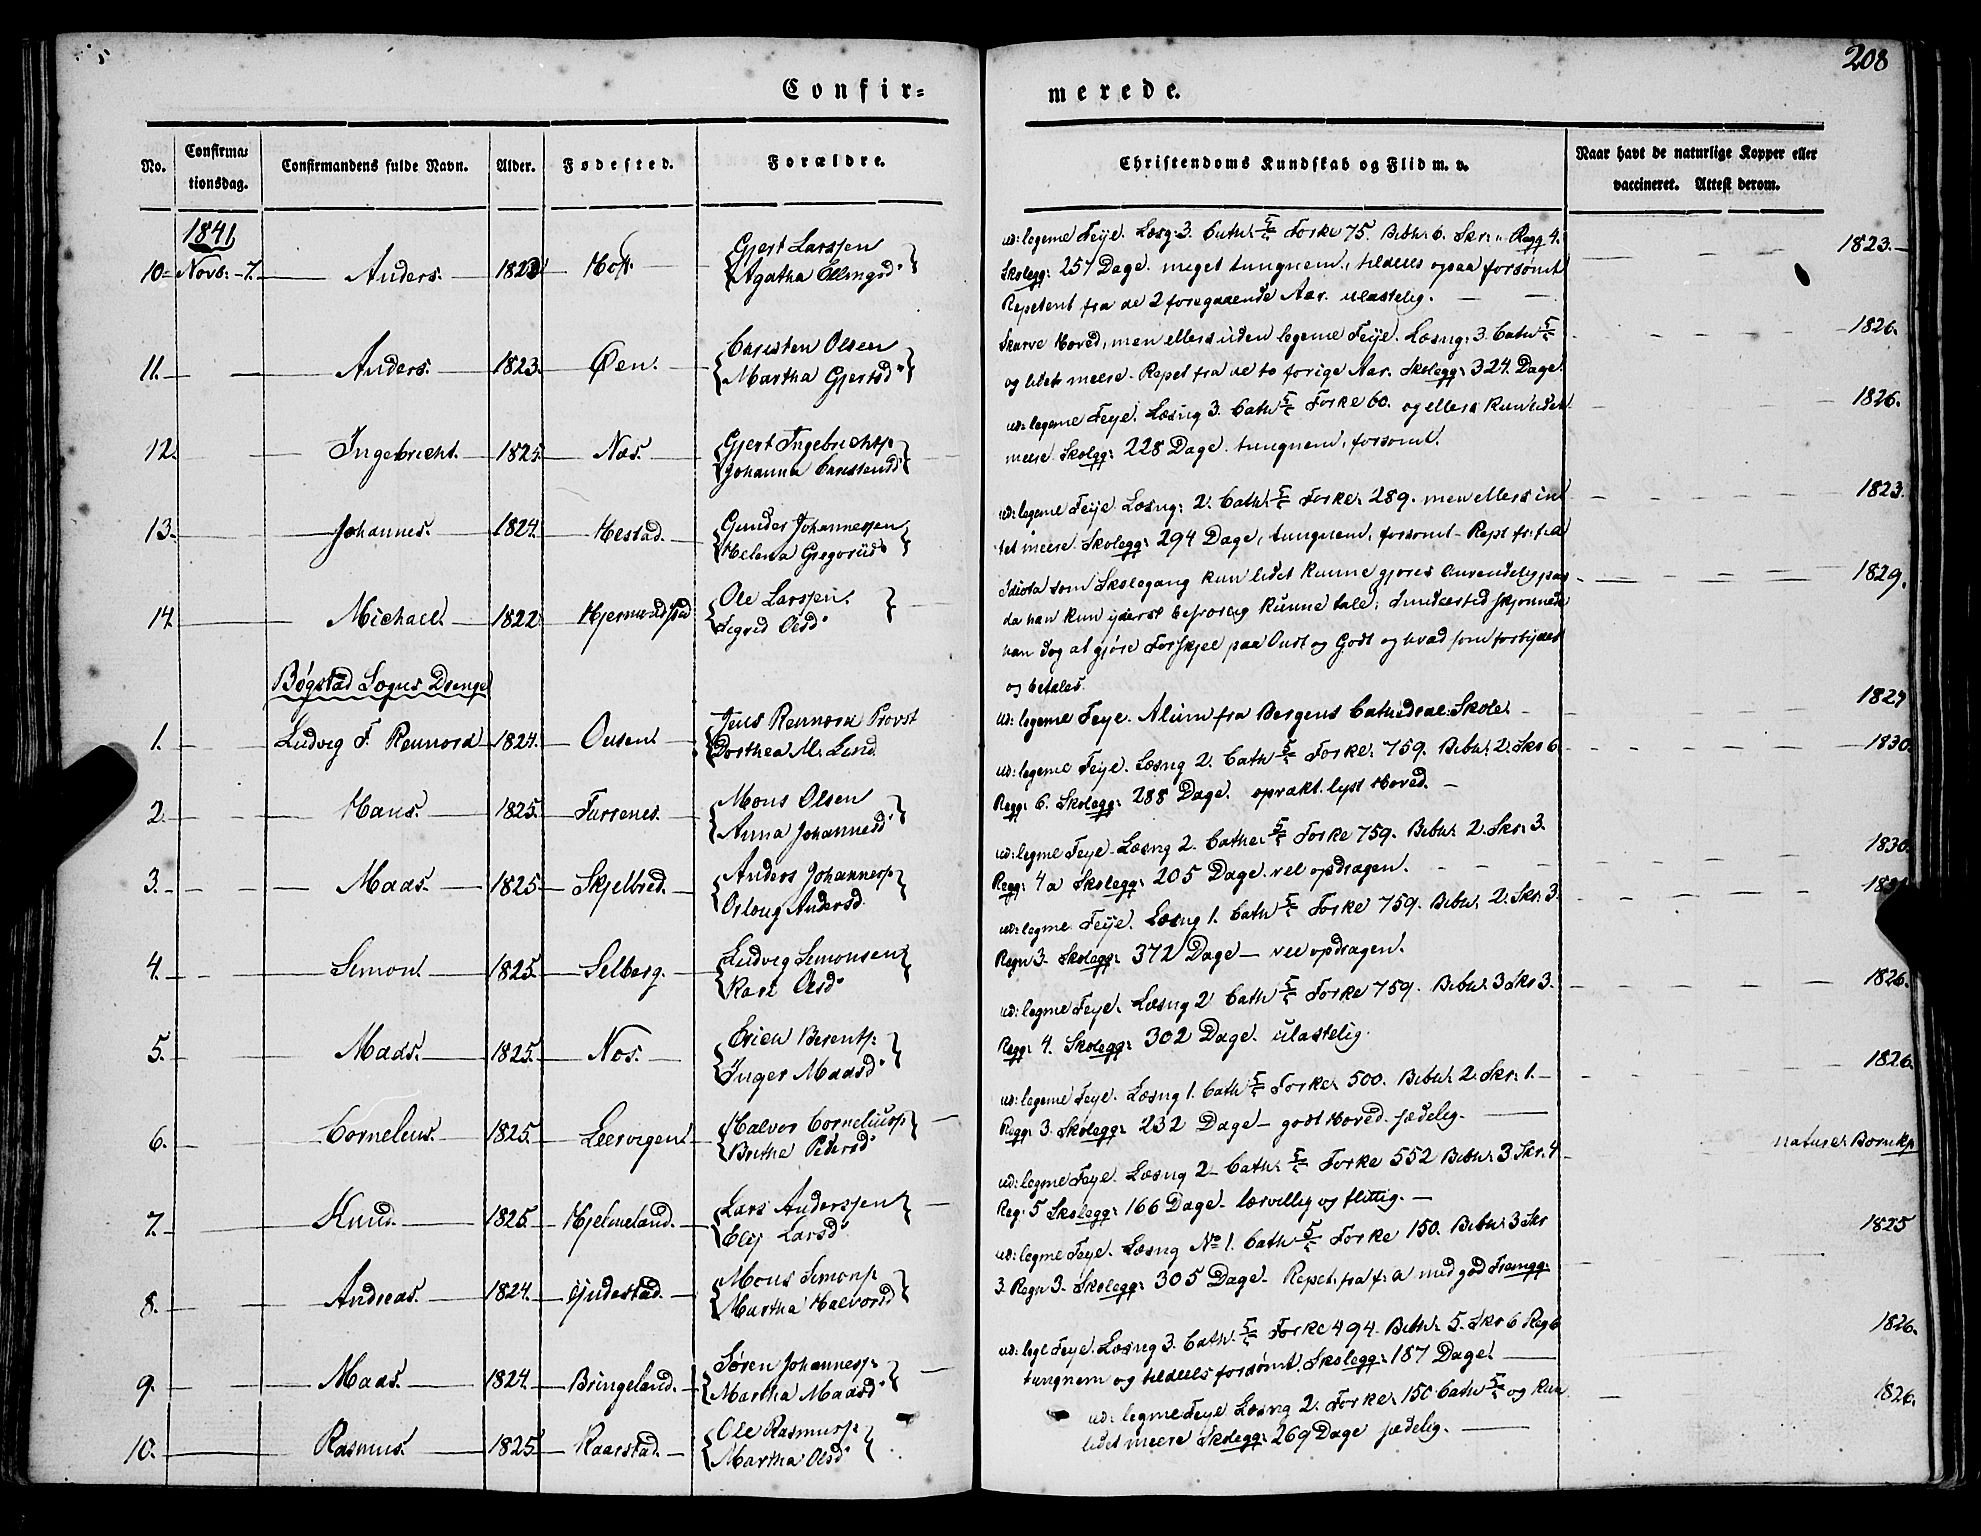 208
Confir= merede.
No. Confirma: tionsdag. Confirmandens fulde Navn. Alder. Fødested. Forældre. Christendoms Kundskab og Flid m. v. Naar havt de naturlige Kopper eller vaccineret. Attest derom.
1841
10 Novb: 7. Anders. 1823 Hoff. Gjert Larssen
Agatha Ellingsd.
ud: legeme Feije. Læsng: 3. Cath: Forke 75. Bibh: 6. Skr: " Regg 4. 1823.
Skolegg: 257 Dage. meget tungnem, tildeels ogsaa forsømt
Repetent fra de 2 foregaaende Aar. ulastelig.
11. Anders. 1823. Øen. Caristen Olsen
Martha Gjertsd.
Skurve Hoved, men ellers uden legeme Feije. Læsng: 3. Cath 1826.
og lidet meere. Repet fra de to forige Aar. Skolegg: 324. Dage
12. Ingebricht. 1825. Næs. Gjert Ingebrichts:
Johanna Caristensd
ud: legeme Feije. Læsng 3. Cath Forke 60. og ellers kun lidet 1826.
meere. Skolegg: 228 Dage. tungnem, forsømt.
13. Johannes. 1824. Hestad. Gunder Johannessen
Helena Gregoriid
ud: legeme Feije Læsng: 2. Cath: Forke: 289. men ellers in 1823.
tet meere. Skolegg: 294 Dage, tungnem, forsomt. Rept fr: f. a
14. Michael. 1822 Hjermundstad Ole Larssen.
Sigrid Olsd.
Idiota som Skolegang kun lidet kunne gjøres Anvendelig paa 1829.
da han kun yderst besværlig kunne tale; Imidlertid skjønnede
han dog at gjøre Forskjel paa Ondt og Godt og hvad som forbydes
og betales.
Bøgstad Sogns Drenge
1. Ludvig F. Rennord 1824. Ousen Jens Rennord Provst
Dorthea M. Lind.
ud: legeme Feije. Alum fra Bergens Cathedral: Skole. 1829
2. Hans. 1825. Furrenes. Mons Olsen
Anna Johannesd
ud: legeme Feije. Læsng 2. Cath Forke: 759. Bibh: 2. Skr 6 1830.
Regg: 6. Skolegg: 288 Dage. oprakt. lyst Hoved.
3. Maas. 1825 Skjelbred. Anders Johannesp
Oslaug Andersd.
ud: legme Feije. Læsng 2. Cathe: Forke 759. Bibh. 2. Skr: 3. 1830.
Regg: 4 a Skolegg: 205 Dage. vel opdragen.
4. Simon. 1825. Selberg. Ludvig Simonsen
Kari Olsd.
ud: legme Feije. Læsng 1. Cath Forke 759. Bibh: 2. Skr: 3.
Regn 3. Skolegg: 372 Dage — vel opdragen.
5. Mads. 1825. Nos. Erich Berents:
Inger Maasd
ud: legme Feije. Læsng 2 Cath Forke 759. Bibh: 3 Skr 3. 1826.
Regg: 4. Skolegg: 302 Dage. ulastelig.
6. Cornelius. 1825. Leervigen. Halvor Corneliusp
Brithe Pedersd
ud: legeme Feije. Læsng 1. Cath Forke: 500. Bibh: 2. Skr: 1. 1826.
Regg: 3. Skolegg: 232 Dage — godt Hoved. sædelig.
7. Knud. 1825 Hjelmeland. Lars Anderssen
Elij Larsd
ud: legme Feije. Læsng 2. Cath: Forke 552 Bibh: 3 Skr: 4 naturl. Børnkp
Reg: 5 Skolegg: 166 Dage. lærvillig og flittig.
8. Andreas. 1824. Gjndestad. Mons Simons:
Martha Halvorsd
ud: legme Feije. Læsng No 1. Cath Forke 150. Bibh: 3 Skr 1825
3. Regn 3. Skolegg: 305 Dage. Repet: fra f: a med god Framgg:
9. Maas. 1824. Bringeland. Søren Johannesp:
Martha Maasd
ud: legl Feije. Læsng 3. Cath. Forke 494. Bibh: 5. Skr 6 Reg 6 1826.
tungnem og tildeels forsømt. Skolegg: 187 Dage.
10. Rasmus. 1825 Kaarstad. Ole Rasmusp:
Martha Olsd
ud: legme Feije Læsng 2. Forke 150 Cath og kun 1826.
lidet meere Skolegg: 269 Dage sædelig.